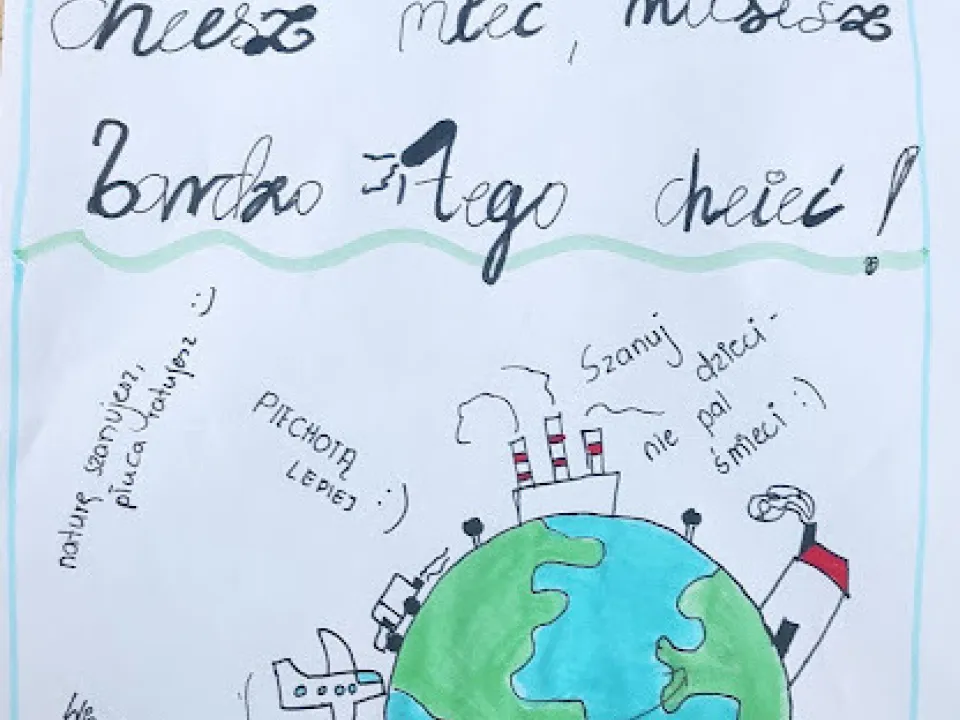 chcesz mieć, musisz
bardzo tego chcieć!
naturę szanujesz,
płuca ratujesz :)
PIECHOTĄ
LEPIEJ :)
Szanuj
dzieci -
nie pal
śmieci :)